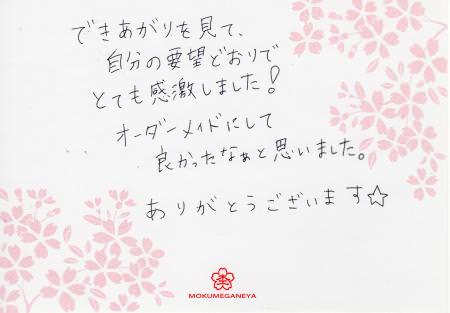 できあがりを見て、
自分の要望どおりで
とても感激しました!
オーダーメイドにして
良かったなぁと思いました。
ありがとうございます☆
MOKUMEGANEYA